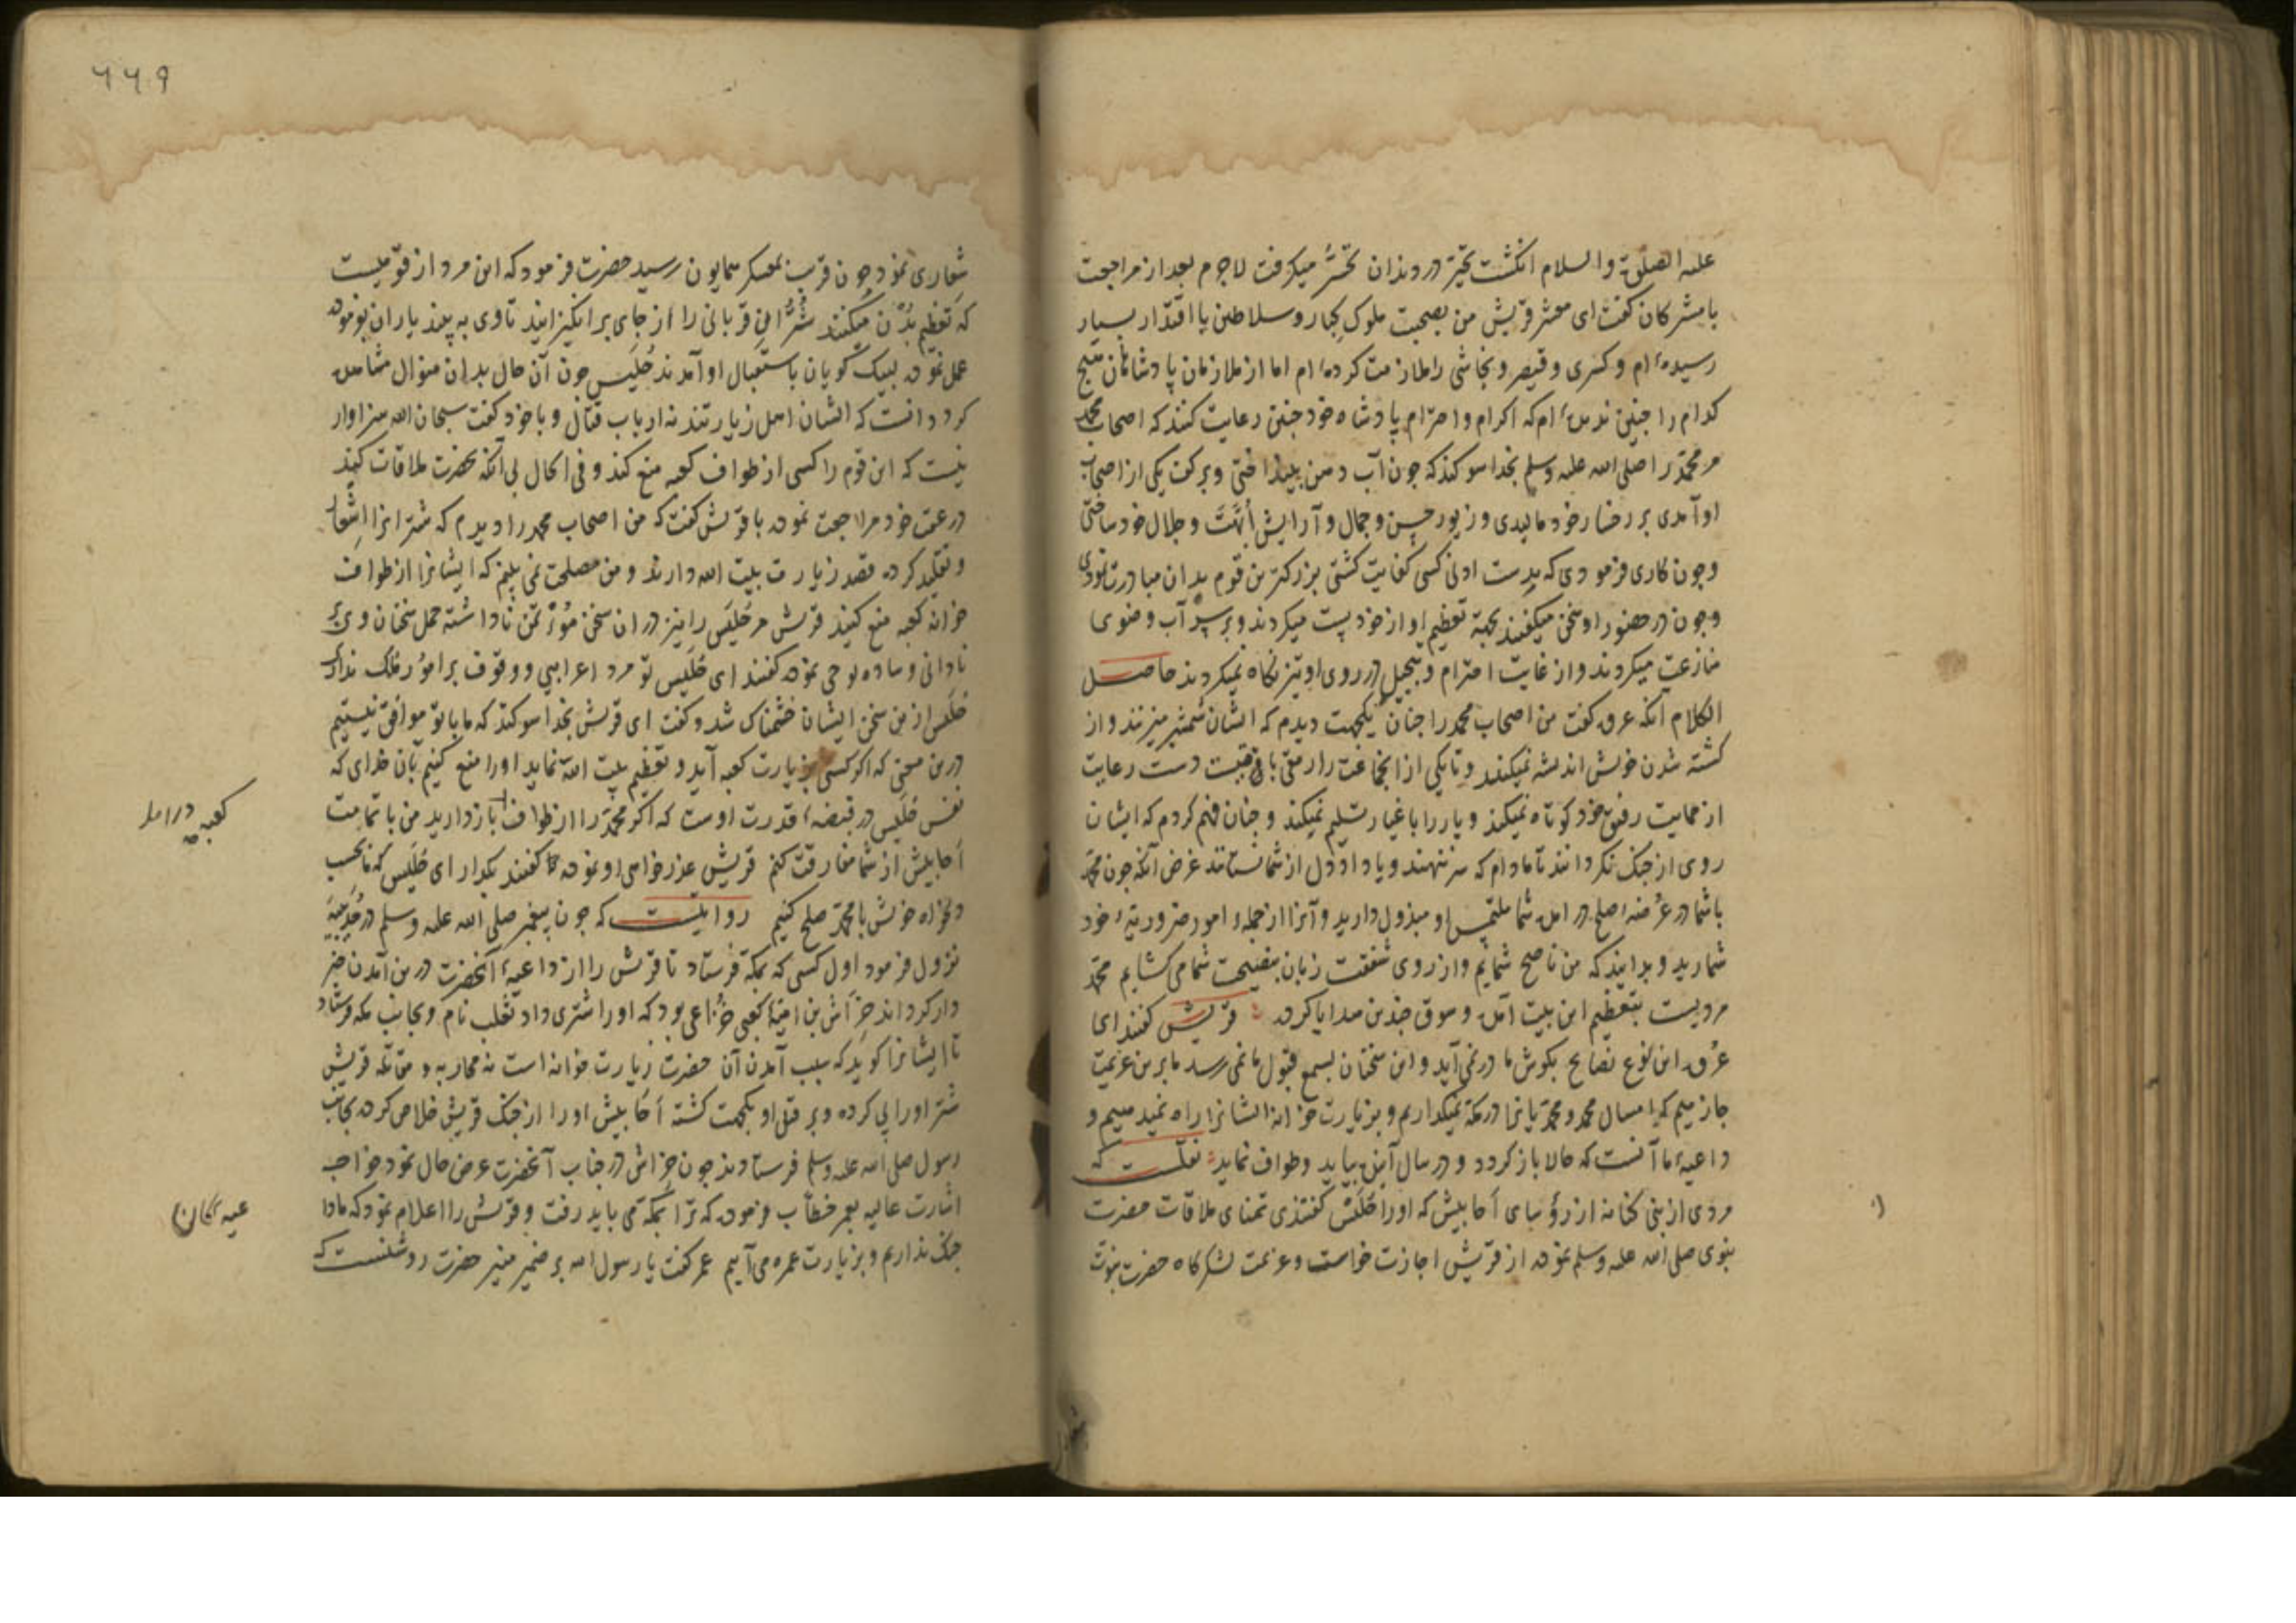 علیه الصلوة والسلام انکشت تحیّر در دندان تحسّر میکرفت لاجرم بعد از مراجعت
با مشرکان کفت ای معشر قریش من بصحبت ملوک کبار و سلاطین با اقتدار بسیار
رسیده‌ام و کسری و قیصر و نجاشی را ملازمت کرده‌ام اما از ملازمان پادشاهان هیچ
کدام را چنین ندیده‌ام که اکرام و احترام پادشاه خود چنین رعایت کنند که اصحاب محمد
مر محمّد را صلی الله علیه وسلم بخدا سوکند که چون آب دهن بینداختی و بر کف یکی از اصحاب
او آمدی بر رخسار خود مالیدی و زیور حسن و جمال و آرایش اُبّهت و جلال خود ساختی
و چون کاری فرمودی که بدست ادنی کسی کفایت کشتی بزرکترین قوم بدان مبادرت نمودی
و چون در حضور او سخن میکفتند بجهة تعظیم او از خود پست میکردند و بر سر آب وضوی
منازعت میکردند و از غایت احترام و تبجیل در روی او تیز نکاه نمیکردند حاصل
الکلام آنکه عروه کفت من اصحاب محمد را چنان یکجهت دیدم که ایشان شمشیر میزنند و از
کشته شدن خویش اندیشه نمیکنند و تا یکی از انجماعت را رمقی باقیست دست رعایت
از حمایت رفیق خود کوتاه نمیکند و یار را باغیار تسلیم نمیکند و چنان فهم کردم که ایشان
روی از جنک نکردانند تا مادام که سر ننهند و یا داد دل از شما نستانند غرض آنکه چون محمّد
با شما در عرضهٔ صلح در آمده شما ملتمس او مبذول دارید و آنرا از جملهٔ امور ضروریّهٔ خود
شمارید و بدانید که من ناصح شمایم و از روی شفقت زبان بنصیحت شما می کشایم محمّد
مردیست بتعظیم این بیت آمده و سوق چندین هدایا کرده قریش کفتند ای
عُروه این نوع نصایح بکوش ما در نمی آید و این سخنان بسمع قبول ما نمی رسد ما برین عزیمت
جازمیم که امسال محمد و محمّدیانرا در مکّه نمیکذاریم و بزیارت خانه ایشانرا راه نمیدهیم و
داعیهٔ ما آنست که حالا باز کردد و در سال آینده بیاید و طواف نماید نقلست که
مردی از بنی کنانه از رؤسای اَحابیش که او را حُلَیس کفتندی تمنای ملاقات حضرت
نبوی صلی الله علیه وسلم نموده از قریش اجازت خواست و عزیمت لشکرکاه حضرت نبوّت
۶۶۹
شعاری نمود چون قریب بمعسکر همایون رسید حضرت فرمود که این مرد از قومیست
که تعظیم بُدْن میکنند شترانِ قربانی را از جای برانکیزانید تا وی به بیند یاران بفرموده
عمل نموده لبیک کویان باستقبال او آمدند حُلَیس چون آن حال بدان منوال مشاهده
کرد دانست که ایشان اهل زیارتند نه ارباب قتال و با خود کفت سبحان الله سزاوار
نیست که این قوم را کسی از طواف کعبه منع کند و فی الحال بی آنکه بحضرت ملاقات کند
در عقب خود مراجعت نموده با قریش کفت که من اصحاب محمد را دیدم که شترانرا اِشعار
و تقلید کرده قصد زیارت بیت الله دارند و من مصلحت نمی بینم که ایشانرا از طواف
خانه کعبه منع کنید قریش مر حُلیس را نیز در ان سخن مؤتمن نا داشته حمل سخنان وی بر
نادانی و ساده لوحی نموده کفتند ای حُلَیس تو مرد اعرابیی و وقوف بر امور ملک نداری
حُلَیس ازین سخن ایشان خشمناک شد و کفت ای قریش بخدا سوکند که ما با تو موافق نیستیم
درین معنی که اکر کسی بزیارت کعبه آید و تعظیم بیت الله نماید او را منع کنیم بآن خدای که
نفس حُلَیس در قبضهٔ قدرت اوست که اکر محمّد را از طواف باز دارید من با تمامت
اَحابیش از شما مفارقت کنم قریش عذر خواهی او نموده کفتند بکذار ای حُلَیس که ما بحسب
دلخواه خویش با محمّد صلح کنیم روایتست که چون پیغمبر صلی الله علیه وسلم در حُدَیبیَه
نزول فرمود اول کسی که بمکّه فرستاد تا قریش را از داعیهٔ آنحضرت درین آمدن خبر
دار کرداند خِراش بن امیّهٔ کعبی خُزاعی بود که او را شتری داد ثعلب نام و بجانب مکه فرستاد
تا ایشانرا کوید که سبب آمدن آن حضرت زیارت خانه است نه محاربه و مقاتله قریش
شتر او را پی کرده و بر قتل او یکجهت کشته اَحابیش او را از جنک قریش خلاص کرده بجانب
رسول صلی الله علیه وسلم فرستادند چون خراش در جناب آنحضرت عرض حال نمود خواجه
اشارت عالیه بعمر خطّاب فرموده که ترا بمکّه می باید رفت و قریش را اعلام نمود که ما داعیه
جنک نداریم و بزیارت عمره می آییم عمر کفت یا رسول الله بر ضمیر منیر حضرت روشنست که
کعبه در آمد